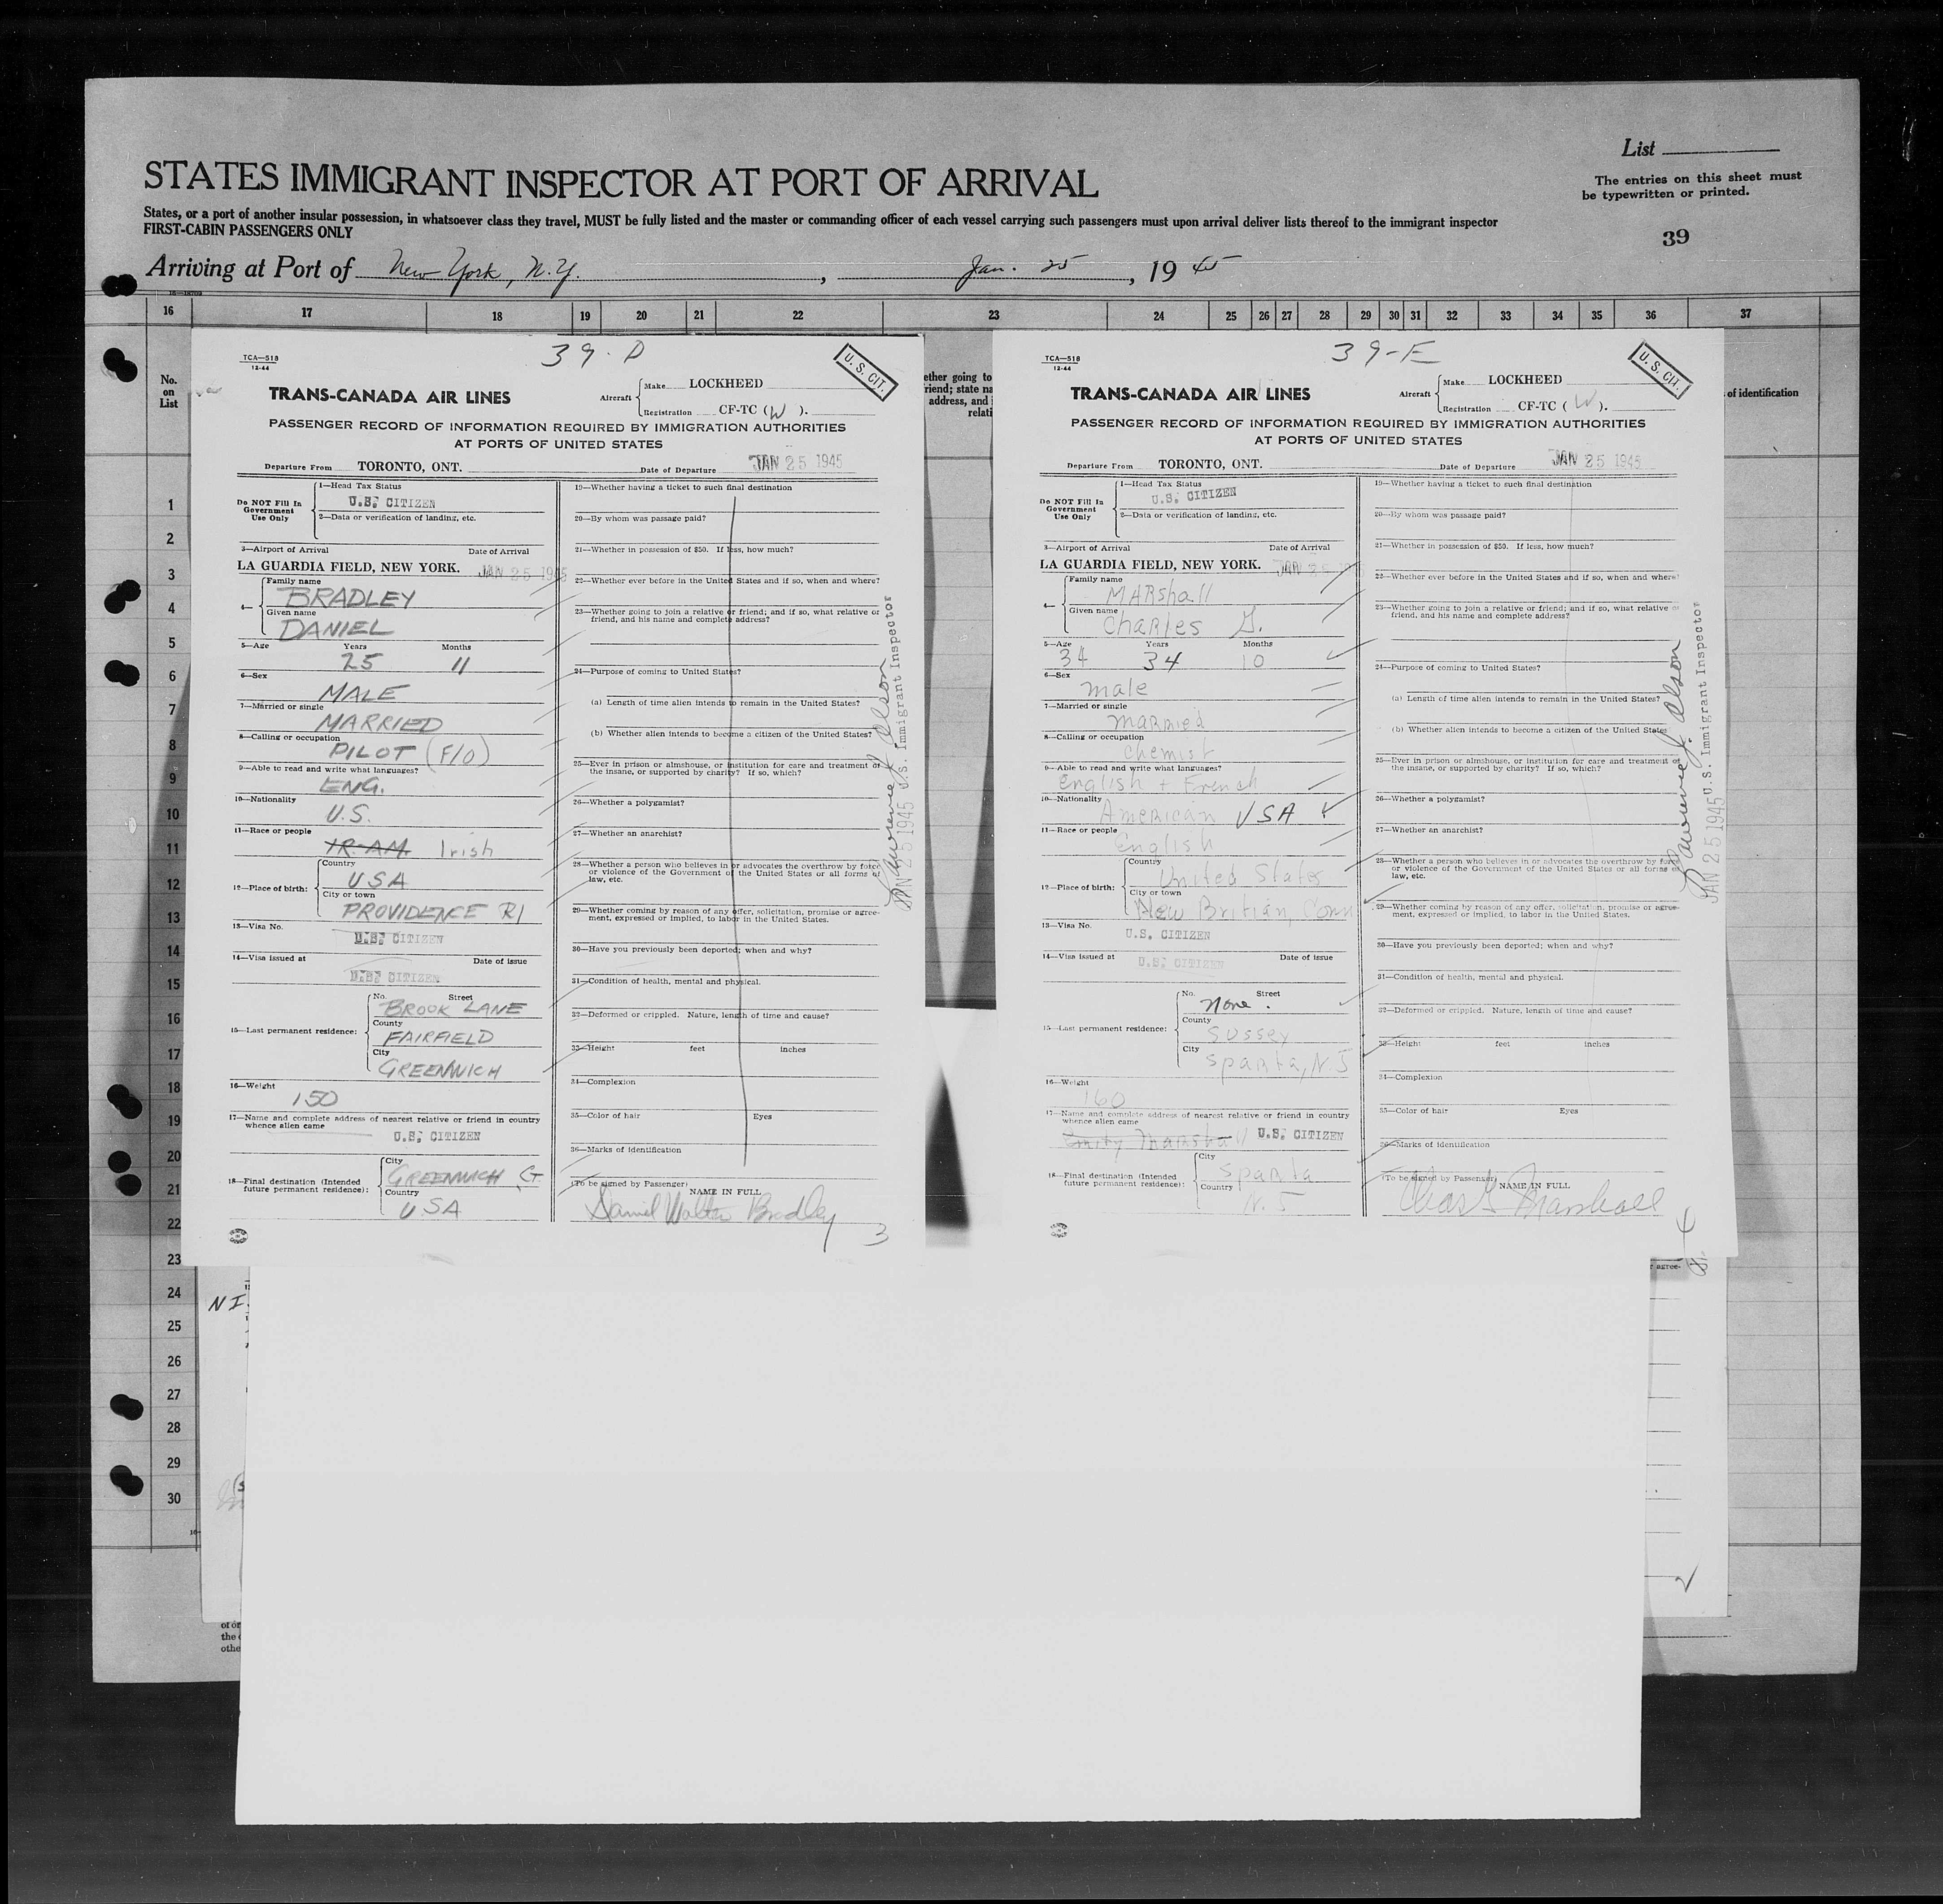 List
The entries on this sheet must
be typewritten or printed.
STATES IMMIGRANT INSPECTOR AT PORT OF ARRIVAL
States, or a port of another insular possession, in whatsoever class they travel, MUST be fully listed and the master or commanding officer of each vessel carrying such passengers must upon arrival deliver lists thereof to the immigrant inspector
FIRST-CABIN PASSENGERS ONLY
39
Arriving at Port of New York, N.Y. , Jan. 25 , 19 45
16 17 18 19 20 21 22 23 24 25 26 27 28 29 30 31 32 33 34 35 36 37
No.
on
List
ether going to
riend; state na
address, and i
relati
of identification
1
2
3
4
5
6
7
8
9
10
11
12
13
14
15
16
17
18
19
20
21
22
23
24
25
26
27
28
29
30
39-D
TCA—518
12-44
U.S. CIT.
TRANS-CANADA AIR LINES
Aircraft
Make LOCKHEED
Registration CF-TC (W).
PASSENGER RECORD OF INFORMATION REQUIRED BY IMMIGRATION AUTHORITIES
AT PORTS OF UNITED STATES
Departure From TORONTO, ONT. Date of Departure JAN 25 1945
Do NOT Fill In
Government
Use Only
1—Head Tax Status
U.S. CITIZEN
2—Data or verification of landing, etc.
3—Airport of Arrival Date of Arrival
LA GUARDIA FIELD, NEW YORK. JAN 25 1945
4—
Family name
BRADLEY
Given name
DANIEL
5—Age Years Months
25 11
6—Sex
MALE
7—Married or single
MARRIED
8—Calling or occupation
PILOT (F/O)
9—Able to read and write what languages?
ENG.
10—Nationality
U.S.
11—Race or people
IR-AM. Irish
12—Place of birth:
Country
USA
City or town
PROVIDENCE RI
13—Visa No.
U.S. CITIZEN
14—Visa issued at Date of issue
U.S. CITIZEN
15—Last permanent residence:
No. Street
BROOK LANE
County
FAIRFIELD
City
GREENWICH
16—Weight
150
17—Name and complete address of nearest relative or friend in country
whence alien came
U.S. CITIZEN
18—Final destination (Intended
future permanent residence):
City
GREENWICH CT
Country
USA
19—Whether having a ticket to such final destination
20—By whom was passage paid?
21—Whether in possession of $50. If less, how much?
22—Whether ever before in the United States and if so, when and where?
23—Whether going to join a relative or friend; and if so, what relative or
friend, and his name and complete address?
24—Purpose of coming to United States?
(a) Length of time alien intends to remain in the United States?
(b) Whether alien intends to become a citizen of the United States?
25—Ever in prison or almshouse, or institution for care and treatment of
the insane, or supported by charity? If so, which?
26—Whether a polygamist?
27—Whether an anarchist?
28—Whether a person who believes in or advocates the overthrow by force
or violence of the Government of the United States or all forms of
law, etc.
29—Whether coming by reason of any offer, solicitation, promise or agree-
ment, expressed or implied, to labor in the United States.
30—Have you previously been deported; when and why?
31—Condition of health, mental and physical.
32—Deformed or crippled. Nature, length of time and cause?
33—Height feet inches
34—Complexion
35—Color of hair Eyes
36—Marks of identification
(To be signed by Passenger)
NAME IN FULL
Daniel Walter Bradley
3
Lawrence J. Olson
JAN 25 1945 U.S. Immigrant Inspector
39-E
TCA—518
12-44
U.S. CIT.
TRANS-CANADA AIR LINES
Aircraft
Make LOCKHEED
Registration CF-TC (W).
PASSENGER RECORD OF INFORMATION REQUIRED BY IMMIGRATION AUTHORITIES
AT PORTS OF UNITED STATES
Departure From TORONTO, ONT. Date of Departure JAN 25 1945
Do NOT Fill In
Government
Use Only
1—Head Tax Status
U.S. CITIZEN
2—Data or verification of landing, etc.
3—Airport of Arrival Date of Arrival
LA GUARDIA FIELD, NEW YORK. JAN 25
4—
Family name
MARshall
Given name
Charles G.
5—Age Years Months
34 34 10
6—Sex
male
7—Married or single
married
8—Calling or occupation
chemist
9—Able to read and write what languages?
English + French
10—Nationality
American USA
11—Race or people
English
12—Place of birth:
Country
United States
City or town
New Britian, Conn
13—Visa No.
U.S. CITIZEN
14—Visa issued at Date of issue
U.S. CITIZEN
15—Last permanent residence:
No. Street
None.
County
Sussey
City
Sparta, N.J
16—Weight
160
17—Name and complete address of nearest relative or friend in country
whence alien came
Marshall U.S. CITIZEN
18—Final destination (Intended
future permanent residence):
City
Sparta
Country
N.J
19—Whether having a ticket to such final destination
20—By whom was passage paid?
21—Whether in possession of $50. If less, how much?
22—Whether ever before in the United States and if so, when and where?
23—Whether going to join a relative or friend; and if so, what relative or
friend, and his name and complete address?
24—Purpose of coming to United States?
(a) Length of time alien intends to remain in the United States?
(b) Whether alien intends to become a citizen of the United States
25—Ever in prison or almshouse, or institution for care and treatment of
the insane, or supported by charity? If so, which?
26—Whether a polygamist?
27—Whether an anarchist?
28—Whether a person who believes in or advocates the overthrow by force
or violence of the Government of the United States or all forms of
law, etc.
29—Whether coming by reason of any offer, solicitation, promise or agree-
ment, expressed or implied, to labor in the United States.
30—Have you previously been deported; when and why?
31—Condition of health, mental and physical.
32—Deformed or crippled. Nature, length of time and cause?
33—Height feet inches
34—Complexion
35—Color of hair Eyes
36—Marks of identification
(To be signed by Passenger)
NAME IN FULL
Chas G Marshall
Lawrence J. Olson
JAN 25 1945 U.S. Immigrant Inspector
r agree-
NI
2
of or
the
othe